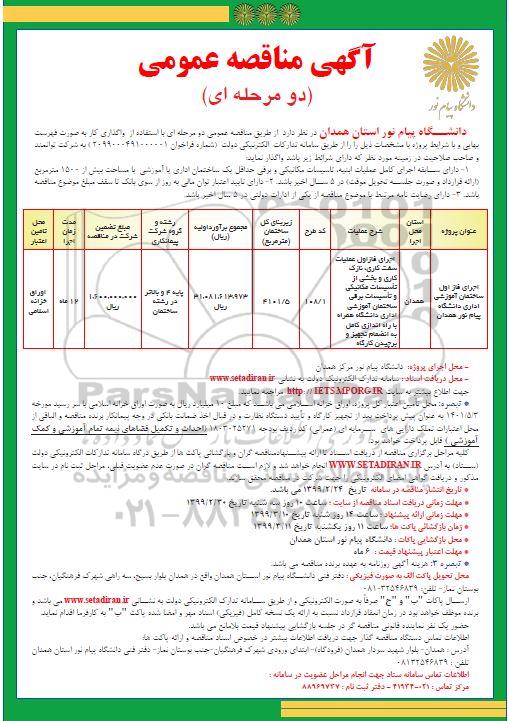 آگهی مناقصه عمومی
(دو مرحله ای)
دانشگاه پیام نور
دانشـــگاه پیام نور استان همدان در نظر دارد از طریق مناقصه عمومی دو مرحله ای با استفاده از واگذاری کار به صورت فهرست
بهایی و با شرایط پروژه با مشخصات ذیل را از طریق سامانه تدارکات الکترونیکی دولت (شماره فراخوان ۲۰۹۹۰۰۰۴۹۱۰۰۰۰۰۱) به شرکت توانمند
و صاحب صلاحیت در زمینه مورد نظر که دارای شرائط زیر باشد واگذار نماید:
۱- دارای سسابقه اجرای کامل عملیات ابنیه، تاسیسات مکانیکی و برقی حداقل یک ساختمان اداری یا آموزشی با مساحت بیش از ۱۵۰۰ مترمربع
(ارائه قرارداد و صورت جلسه تحویل موقت) در ۵ سال اخیر باشد. ۲- دارای تایید اعتبار توان مالی به روز از سوی بانک تا سقف مبلغ موضوع مناقصه
باشد. ۳- دارای رضایت نامه مرتبط با موضوع مناقصه از یکی از ادارات دولتی در ۵ سال اخیر باشد.
عنوان پروژه | استان محل اجرا | شرح عملیات | کد طرح | زیربنای کل ساختمان (مترمربع) | مجموع برآورد اولیه (ریال) | رشته و گروه شرکت پیمانکاری | مبلغ تضمین شرکت در مناقصه | مدت زمان اجرا | محل تامین اعتبار
اجرای فاز اول ساختمان آموزشی اداری دانشگاه پیام نور همدان | همدان | اجرای فاز اول عملیات سفت کاری، نازک کاری و بخشی از تأسیسات مکانیکی و تأسیسات برقی ساختمان آموزشی اداری دانشگاه همراه با راه اندازی کامل به انضمام تجهیز و برچیدن کارگاه | ۱۰۸/۱ | ۴۱۰۱/۵ | ۳۱،۰۸۱،۶۱۳،۹۷۳ | پایه ۴ و بالاتر در رشته ساختمان | ۱،۶۰۰،۰۰۰،۰۰۰ ریال | ۱۲ ماه | اوراق خزانه اسلامی
- محل اجرای پروژه: دانشگاه پیام نور مرکز همدان
- محل دریافت اسناد: سامانه تدارک الکترونیک دولت به نشانی www.setadiran.ir
جهت اطلاع بیشتر به سایت http://IETS.MPORG.IR مراجعه نمایید.
* تبصره: محل تأمین اعتبار این پروژه، اوراق خزانه اسلامی می باشد که مبلغ ۱۰ میلیارد ریال به صورت اوراق خزانه اسلامی با سر رسید مورخه
۱۴۰۱/۵/۳ به عنوان پیش پرداخت بعد از تجهیز کارگاه و تأیید دستگاه نظارت و در قبال اخذ ضمانت بانکی در وجه پیمانکار برنده مناقصه و الباقی از
محل اعتبارات تملک دارایی های سرمایه ای (عمرانی) کد ردیف بودجه (۱۸۰۳۰۲۵۲۷۱) (احداث و تکمیل فضاهای نیمه تمام آموزشی و کمک
آموزشی) قابل پرداخت خواهد بود.
کلیه مراحل برگزاری مناقصه از دریافت اسناد تا ارائه پیشنهاد مناقصه گران و بازگشائی پاکت ها از طریق درگاه سامانه تدارکات الکترونیکی دولت
(ستاد) به آدرس WWW.SETADIRAN.IR انجام خواهد شد و لازم است مناقصه گران در صورت عدم عضویت قبلی، مراحل ثبت نام در سایت
مذکور و دریافت گواهی امضای الکترونیکی را جهت شرکت در مناقصه محقق سازند.
* تاریخ انتشار مناقصه در سامانه تاریخ ۱۳۹۹/۲/۲۴ می باشد.
* مهلت زمانی دریافت اسناد مناقصه از سایت: ساعت ۱۰ روز سه شنبه تاریخ ۱۳۹۹/۲/۳۰
* مهلت زمانی ارائه پیشنهاد: ساعت ۱۴ روز شنبه تاریخ ۱۳۹۹/۳/۱۰
* زمان بازگشائی پاکات ها: ساعت ۱۱ روز یکشنبه تاریخ ۱۳۹۹/۳/۱۱
* محل بازگشایی پاکات: دانشگاه پیام نور استان همدان
* مهلت اعتبار پیشنهاد قیمت: ۶ ماه
* تبصره ۳: هزینه آگهی روزنامه به عهده برنده مناقصه می باشد.
محل تحویل پاکت الف به صورت فیزیکی: دفتر فنی دانشگاه پیام نور استان همدان واقع در همدان بلوار بسیج، سه راهی شهرک فرهنگیان، جنب
بوستان نماز- تلفن: ۰۸۱-۳۲۵۴۶۸۳۹
ارسال پاکات "ب" و "ج" صرفاً به صورت الکترونیکی و از طریق سامانه تدارک الکترونیکی دولت به نشانی www.setadiran.ir می باشد و
برنده موظف خواهد بود در زمان انعقاد قرارداد نسبت به ارائه یک نسخه کامل (فیزیکی) اسناد مهر و امضا شده پاکت "ب" به کارفرما اقدام نماید.
حضور یک نفر نماینده قانونی مناقصه گر در جلسه بازگشایی پیشنهاد قیمت بلامانع می باشد.
اطلاعات تماس دستگاه مناقصه گذار جهت دریافت اطلاعات بیشتر در خصوص اسناد مناقصه و ارائه پاکت ها:
آدرس: همدان- بلوار شهید سردار همدان (فرودگاه)-ابتدای ورودی شهرک فرهنگیان-جنب بوستان نماز- دفتر فنی دانشگاه پیام نور استان همدان
تلفن: ۰۸۱۳۲۵۴۶۸۳۹
اطلاعات تماس سامانه ستاد جهت انجام مراحل عضویت در سامانه:
مرکز تماس: ۰۲۱-۴۱۹۳۴ - دفتر ثبت نام: ۸۸۹۶۹۷۳۷
۰۲۱-۸۸۳۴۹۶۷۰-۵